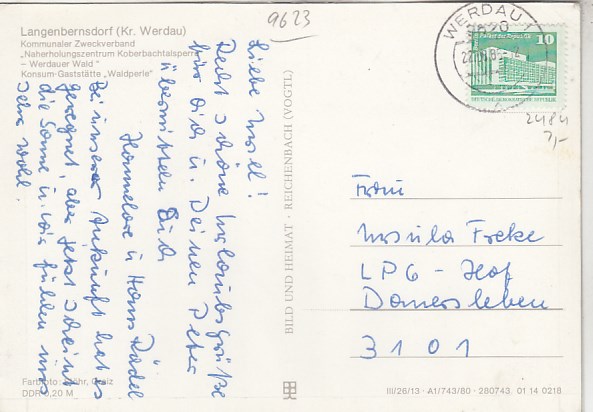 9623
Langenbernsdorf (Kr. Werdau)
Kommunaler Zweckverband
„Naherholungszentrum Koberbachtalsperre
– Werdauer Wald "
Konsum-Gaststätte „Waldperle"
Liebe Ursel!
Recht schöne Urlaubsgrüße
für Dich u. Deinen Peter
übermitteln Euch
Hannelore u Hans Rädel
Bei unserer Ankunft hat es
geregnet, aber jetzt scheint
die Sonne u. wir fühlen uns
sehr wohl.
Farbfoto: Gräiz
DDR 0,20 M
BILD UND HEIMAT · REICHENBACH (VOGTL)
WERDAU 1
9620
10
DEUTSCHE DEMOKRATISCHE REPUBLIK
2484
7,-
Frau
Ursula Freke
LPG - Hof
Domersleben
3101
III/26/13 · A1/743/80 · 280743 01 14 0218